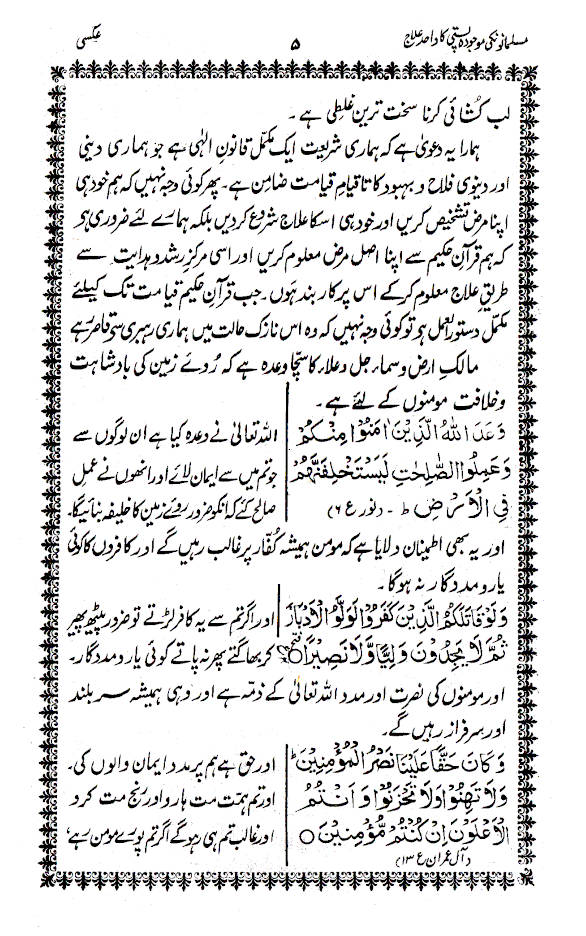 مسلمانونکی موجودہ پستی کا واحد علاج
۵
عکسی
لب کشائی کرنا سخت ترین غلطی ہے۔
ہمارا یہ دعویٰ ہے کہ ہماری شریعت ایک مکمّل قانونِ الٰہی ہے جو ہماری دینی
اور دینوی فلاح و بہبود کا تا قیامِ قیامت ضامن ہے۔ پھر کوئی وجہ نہیں کہ ہم خود ہی
اپنا مرض تشخیص کریں اور خود ہی اسکا علاج شروع کردیں بلکہ ہمارے لئے ضروری ہو
کہ ہم قرآنِ حکیم سے اپنا اصل مرض معلوم کریں اور اسی مرکزِ رشد و ہدایت سے
طریقِ علاج معلوم کرکے اس پر کاربند ہوں۔ جب قرآنِ حکیم قیامت تک کیلئے
مکمّل دستور العمل ہو تو کوئی وجہ نہیں کہ وہ اس نازک حالت میں ہماری رہبری سے قاصر ہے
مالکِ ارض و سماء جل و علاء کا سچّا وعدہ ہے کہ رُوئے زمین کی بادشاہت
و خلافت مومنوں کے لئے ہے۔
وَعَدَ اللهُ الَّذِيْنَ اٰمَنُوْا مِنْكُمْ
وَعَمِلُوا الصّٰلِحٰتِ لَيَسْتَخْلِفَنَّهُمْ
فِي الْاَرْضِ ط۔ (نور ع ۶)
اللہ تعالیٰ نے وعدہ کیا ہے ان لوگوں سے
جو تم میں سے ایمان لائے اور انھوں نے عمل
صالح کئے کہ انکو ضرور روئے زمین کا خلیفہ بنائیگا۔
اور یہ بھی اطمینان دلایا ہے کہ مومن ہمیشہ کُفّار پر غالب رہیں گے اور کافروں کا کوئی
یار و مددگار نہ ہوگا۔
وَلَوْ قَاتَلَكُمُ الَّذِيْنَ كَفَرُوْا لَوَلَّوُا الْاَدْبَارَ
ثُمَّ لَا يَجِدُوْنَ وَلِيًّا وَّلَا نَصِيْرًا ○
اور اگر تم سے یہ کافر لڑتے تو ضرور پیٹھ پھیر
کر بھاگتے پھر نہ پاتے کوئی یار و مددگار۔
اور مومنوں کی نصرت اور مدد اللہ تعالیٰ کے ذمّہ ہے اور وہی ہمیشہ سربلند
اور سرفراز رہیں گے۔
وَكَانَ حَقًّا عَلَيْنَا نَصْرُ الْمُؤْمِنِيْنَ
وَلَا تَهِنُوْا وَلَا تَحْزَنُوْا وَاَنْتُمُ
الْاَعْلَوْنَ اِنْ كُنْتُمْ مُّؤْمِنِيْنَ ○
(آل عمران ع ۱۳)
اور حق ہے ہم پر مدد ایمان والوں کی۔
اور تم ہمّت مت ہارو اور رنج مت کرو
اور غالب تم ہی رہوگے اگر تم پورے مومن رہے،